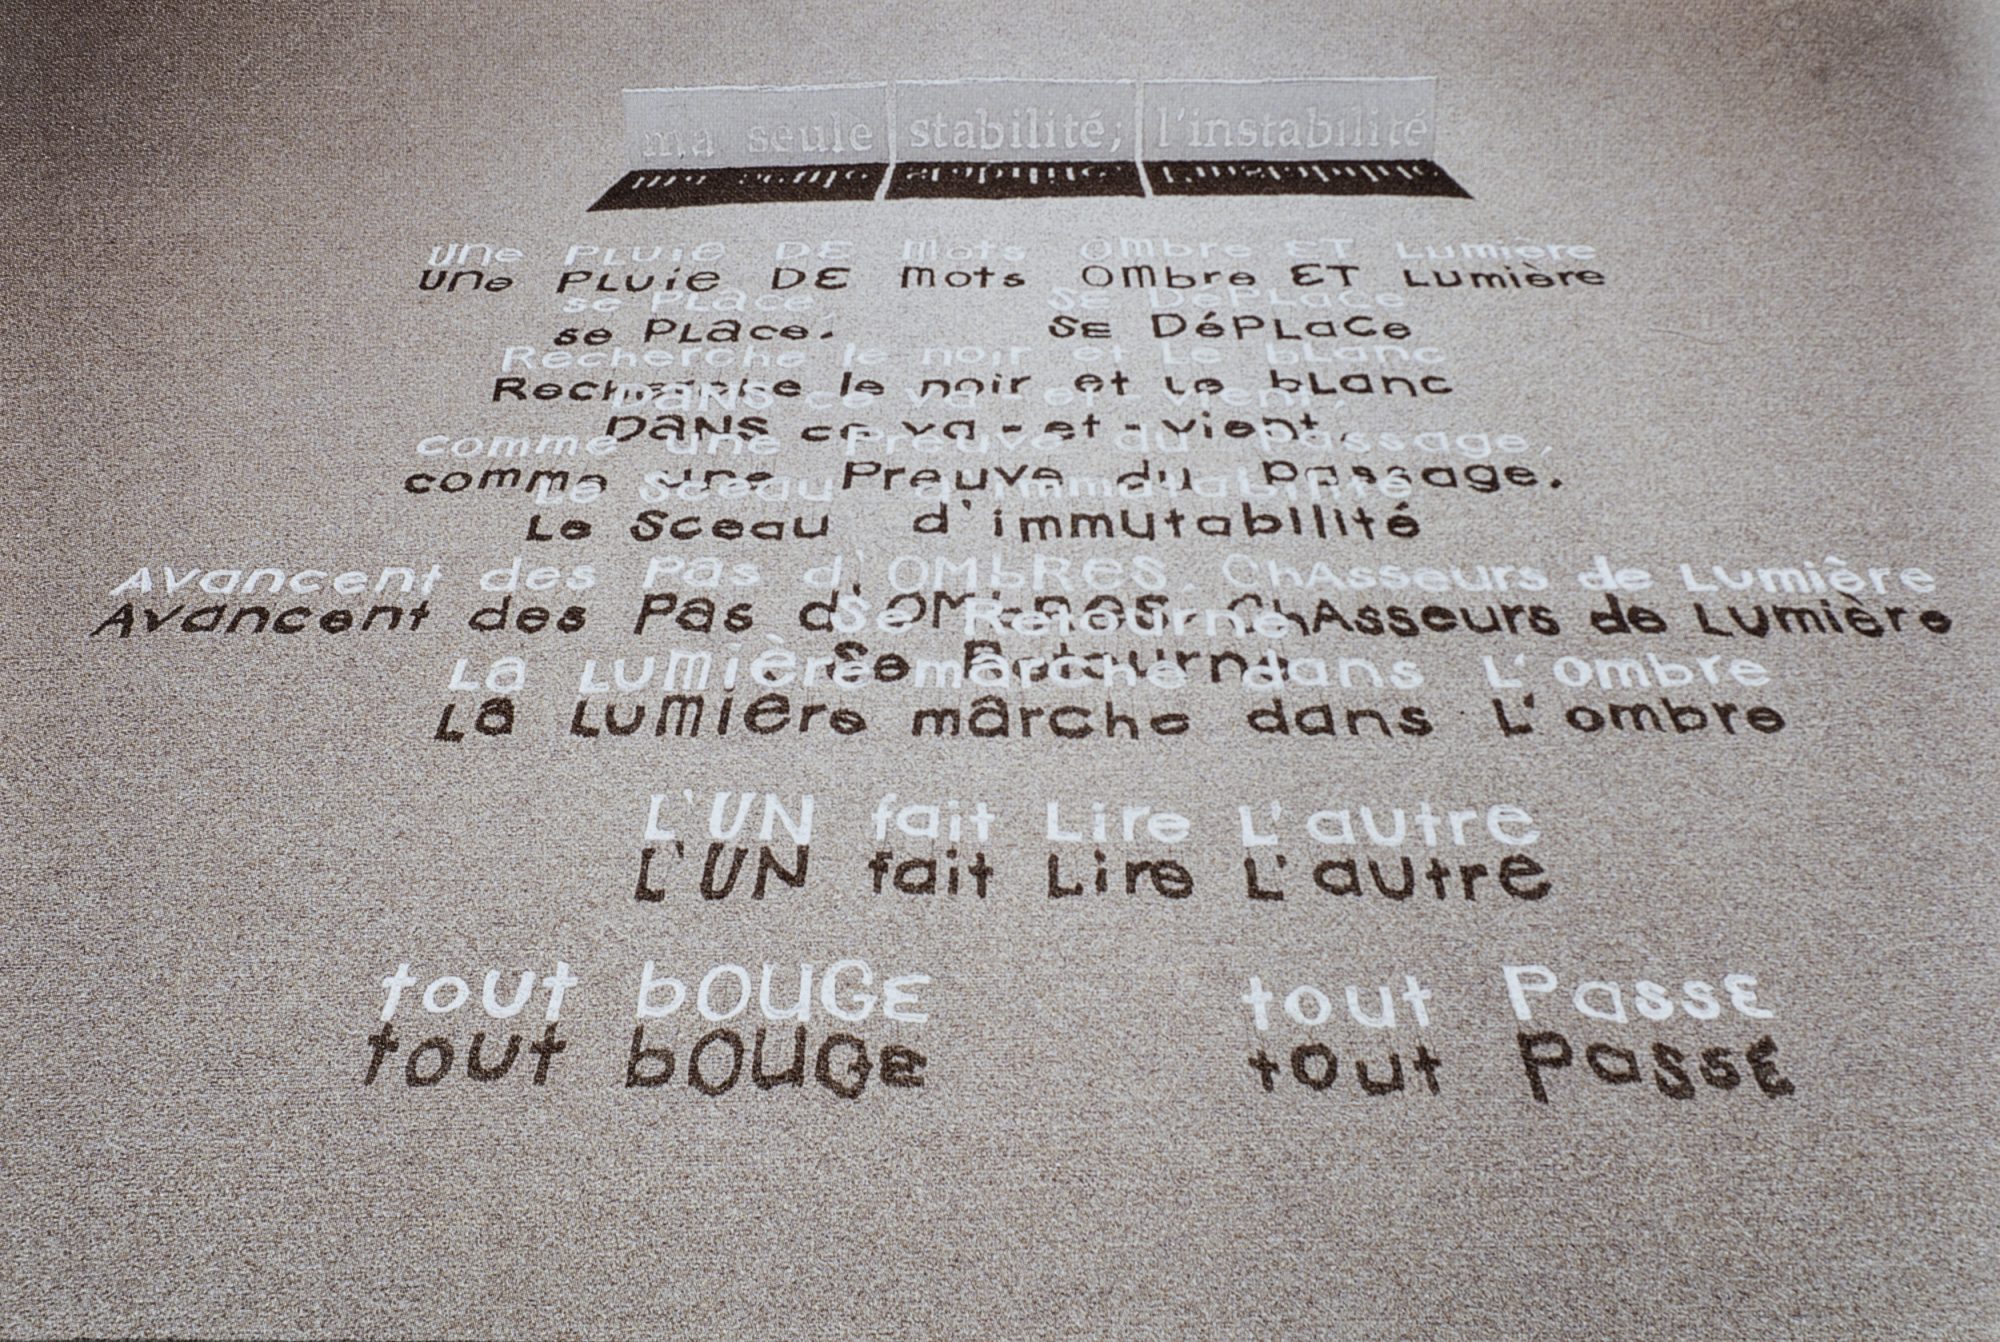 ma seule stabilité; l'instabilité
UNe PLUie DE Mots OMbre ET Lumière
UNe PLUie DE Mots OMbre ET Lumière
se PLace, SE DéPLaCe
se PLace. SE DéPLaCe
Recherche le noir et Le bLanc
Recherche le noir et Le bLanc
DANS ce va-et-vient,
DANS ce va-et-vient,
comme une Preuve du Passage,
comme une Preuve du Passage.
Le Sceau d'immutabilité
Le Sceau d'immutabilité
AVancent des Pas d'OMbRes, ChAsseurs de Lumière
AVancent des Pas d'OMbRes, ChAsseurs de Lumière
Se Retourne
Se Retourne
La Lumière mârche dans L'Ombre
La Lumière mârche dans L'ombre
L'UN fait Lire L'autre
L'UN fait Lire L'autre
tout bOUGE tout PassE
tout bOUGe tout PassE